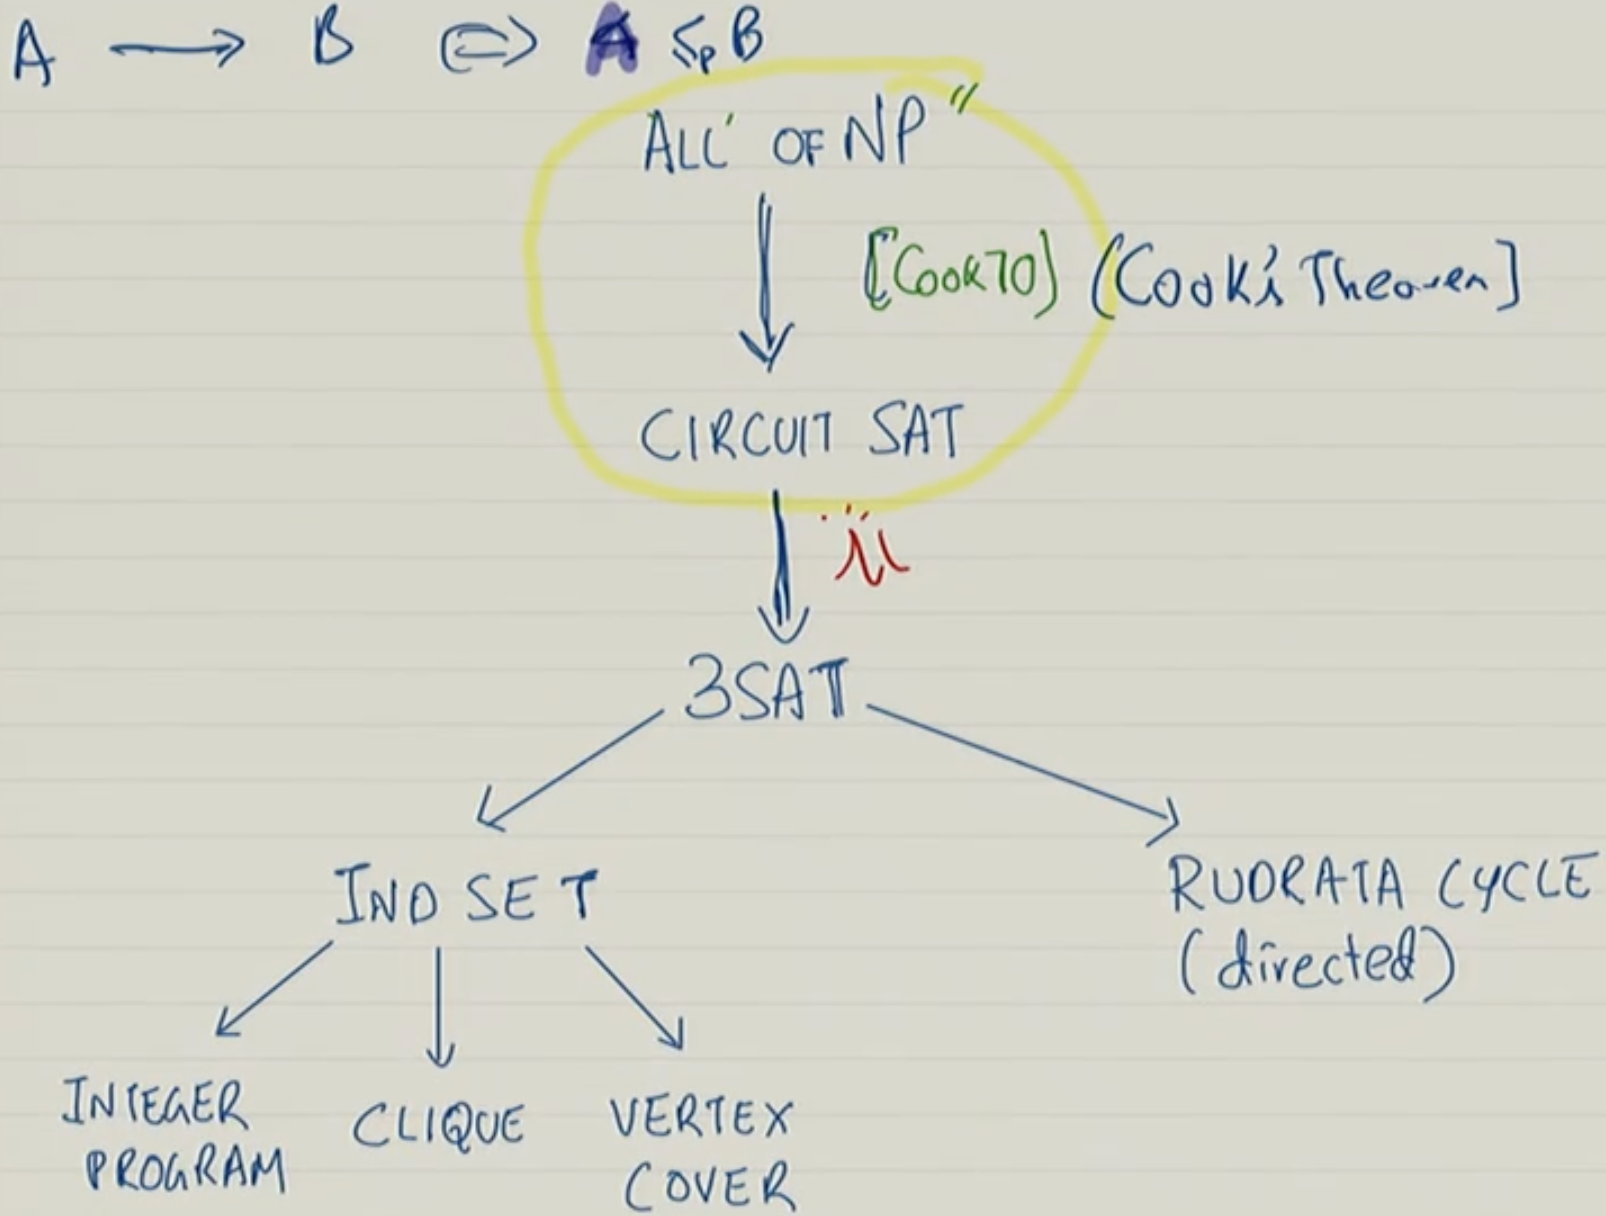 A ⟶ B ⟺ A ≤p B
"ALL OF NP"
[Cook70] (Cook's Theorem]
CIRCUIT SAT
3SAT
IND SET
RUDRATA CYCLE
(directed)
INTEGER
PROGRAM
CLIQUE
VERTEX
COVER